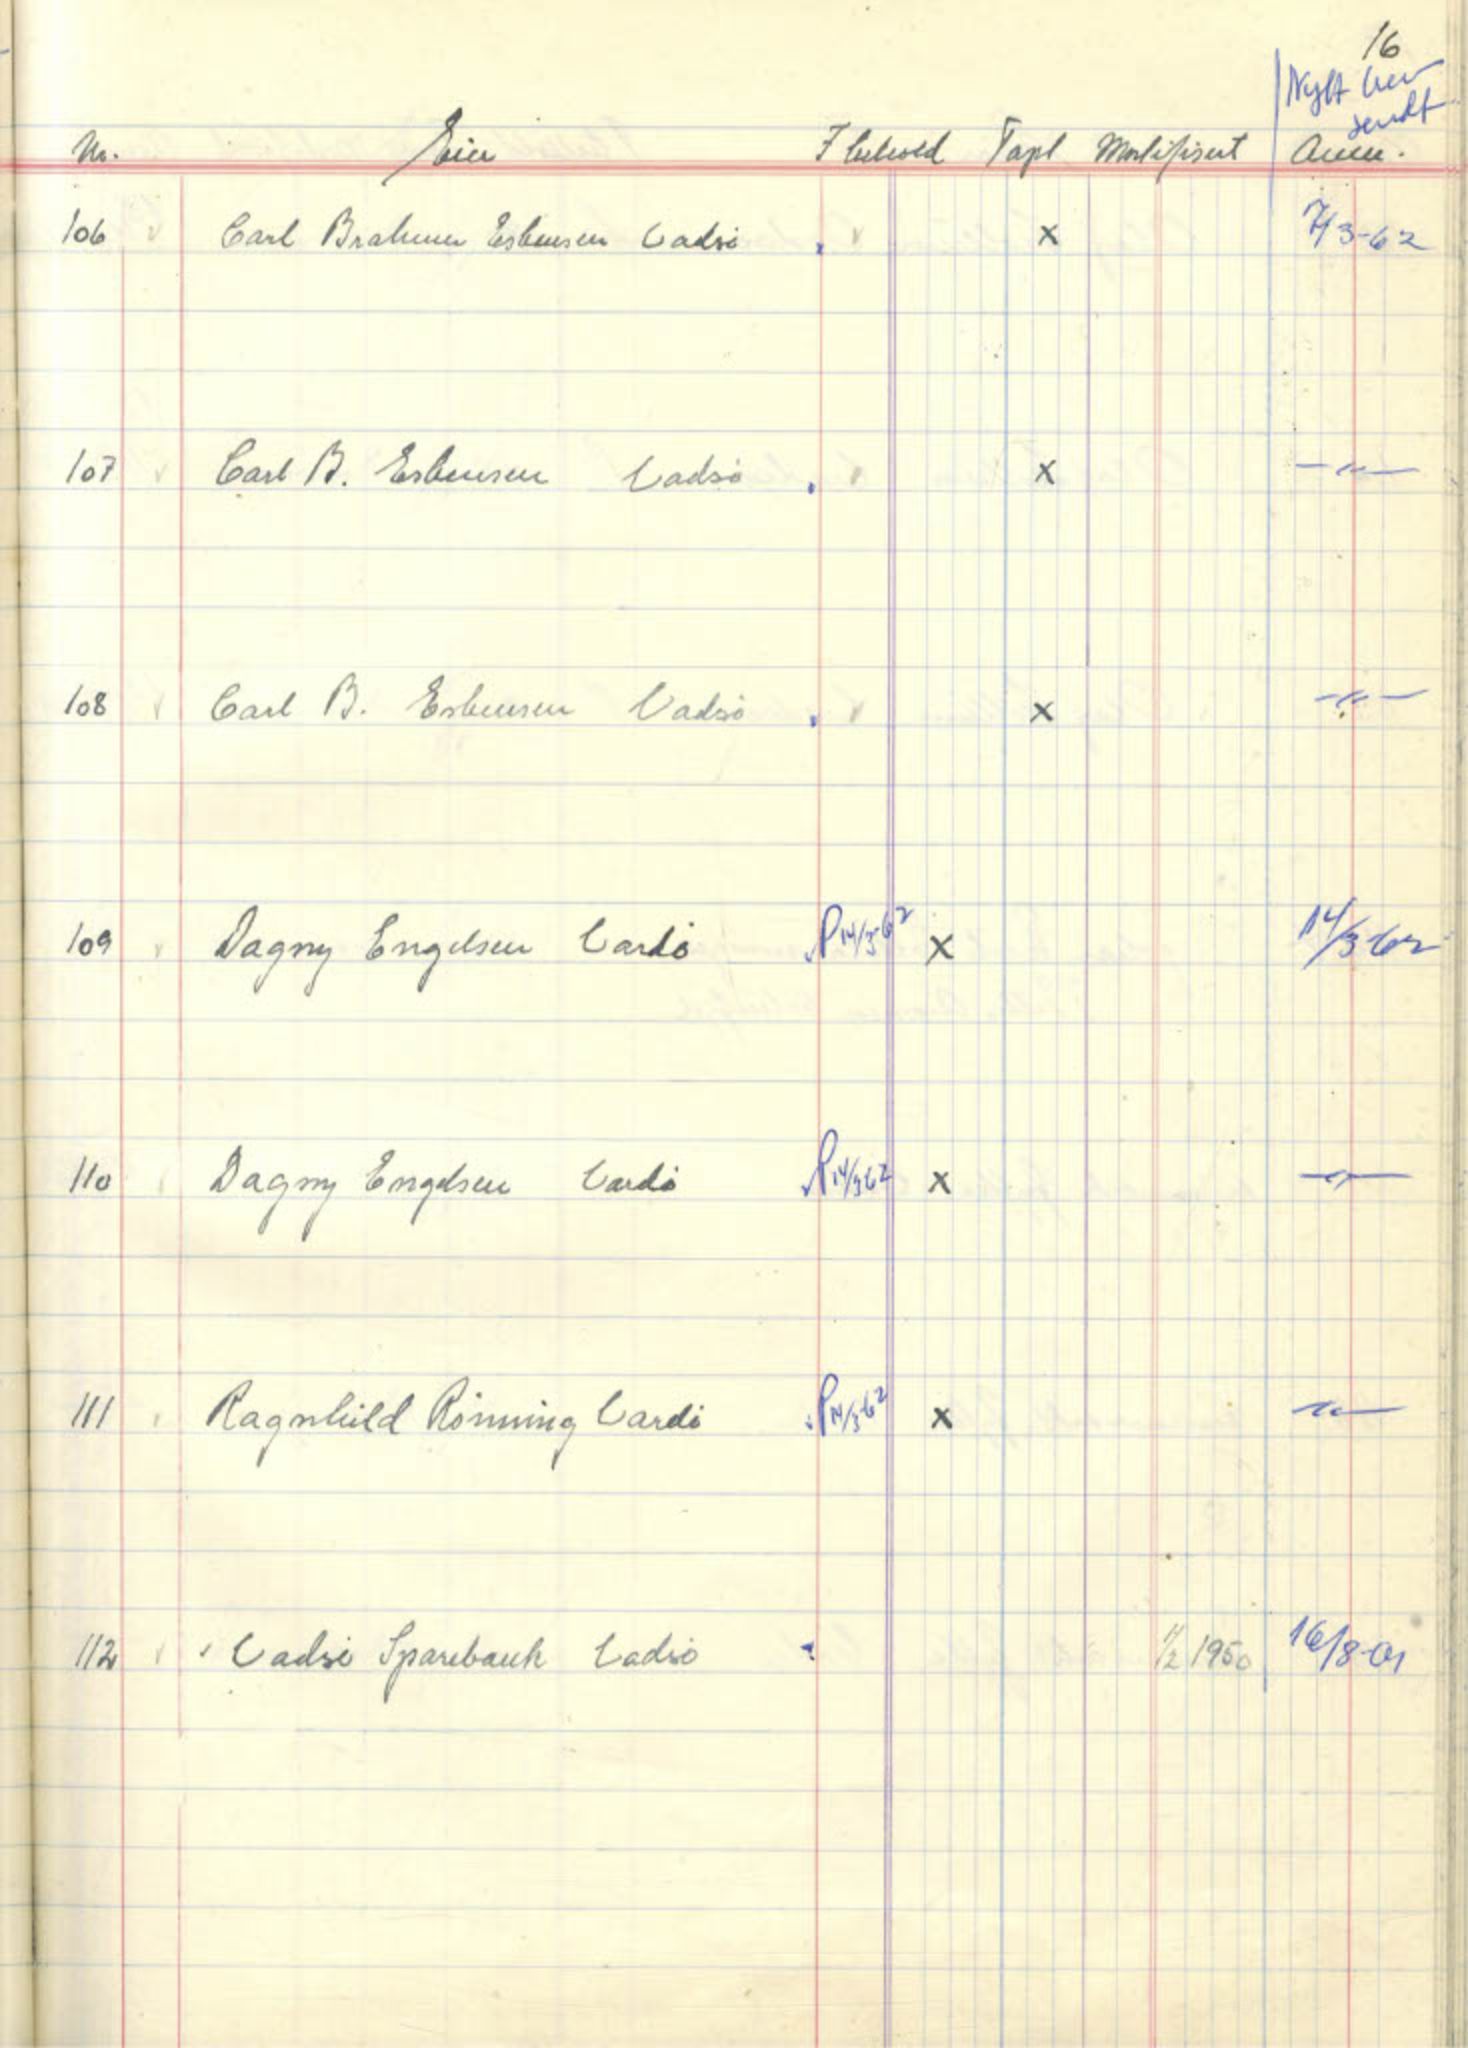 16
Nytt bev
sendt
No. Eier I behold Tapt Mortifisert Anm.
106 Carl Brahmer Esbensen Vadsö x 7/3-62
107 Carl B. Esbensen Vadsö x -"-
108 Carl B. Esbensen Vadsö x -"-
109 Dagny Engelsen Vardö P 14/3-62 x 14/3-62
110 Dagny Engelsen Vardö P 14/3 62 x -"-
111 Ragnhild Rönning Vardö P 14/3-62 x -"-
112 Vadsö Sparebank Vadsö 1950 16/8-01